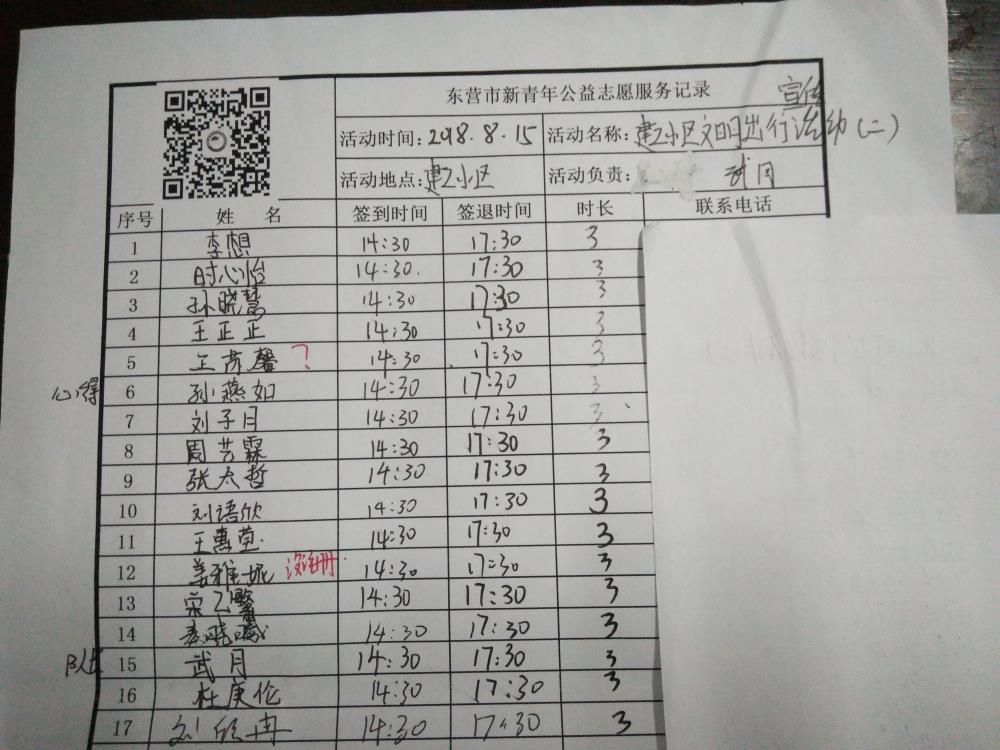 东营市新青年公益志愿服务记录
宣传
活动时间：2018.8.15 活动名称：建工小区文明出行活动（二）
活动地点：建工小区 活动负责：武月
序号 姓名 签到时间 签退时间 时长 联系电话
1 李想 14:30 17:30 3
2 时心怡 14:30 17:30 3
3 孙晓慧 14:30 17:30 3
4 王正正 14:30 17:30 3
5 王芮馨 ? 14:30 17:30 3
心得 6 孙燕如 14:30 17:30 3
7 刘子月 14:30 17:30 3
8 周芸霖 14:30 17:30 3
9 张太哲 14:30 17:30 3
10 刘语欣 14:30 17:30 3
11 王惠莹 14:30 17:30 3
12 姜雅妮 没注册 14:30 17:30 3
13 14:30 17:30 3
14 14:30 17:30 3
队长 15 武月 14:30 17:30 3
16 杜庚伦 14:30 17:30 3
17 刘欣冉 14:30 17:30 3